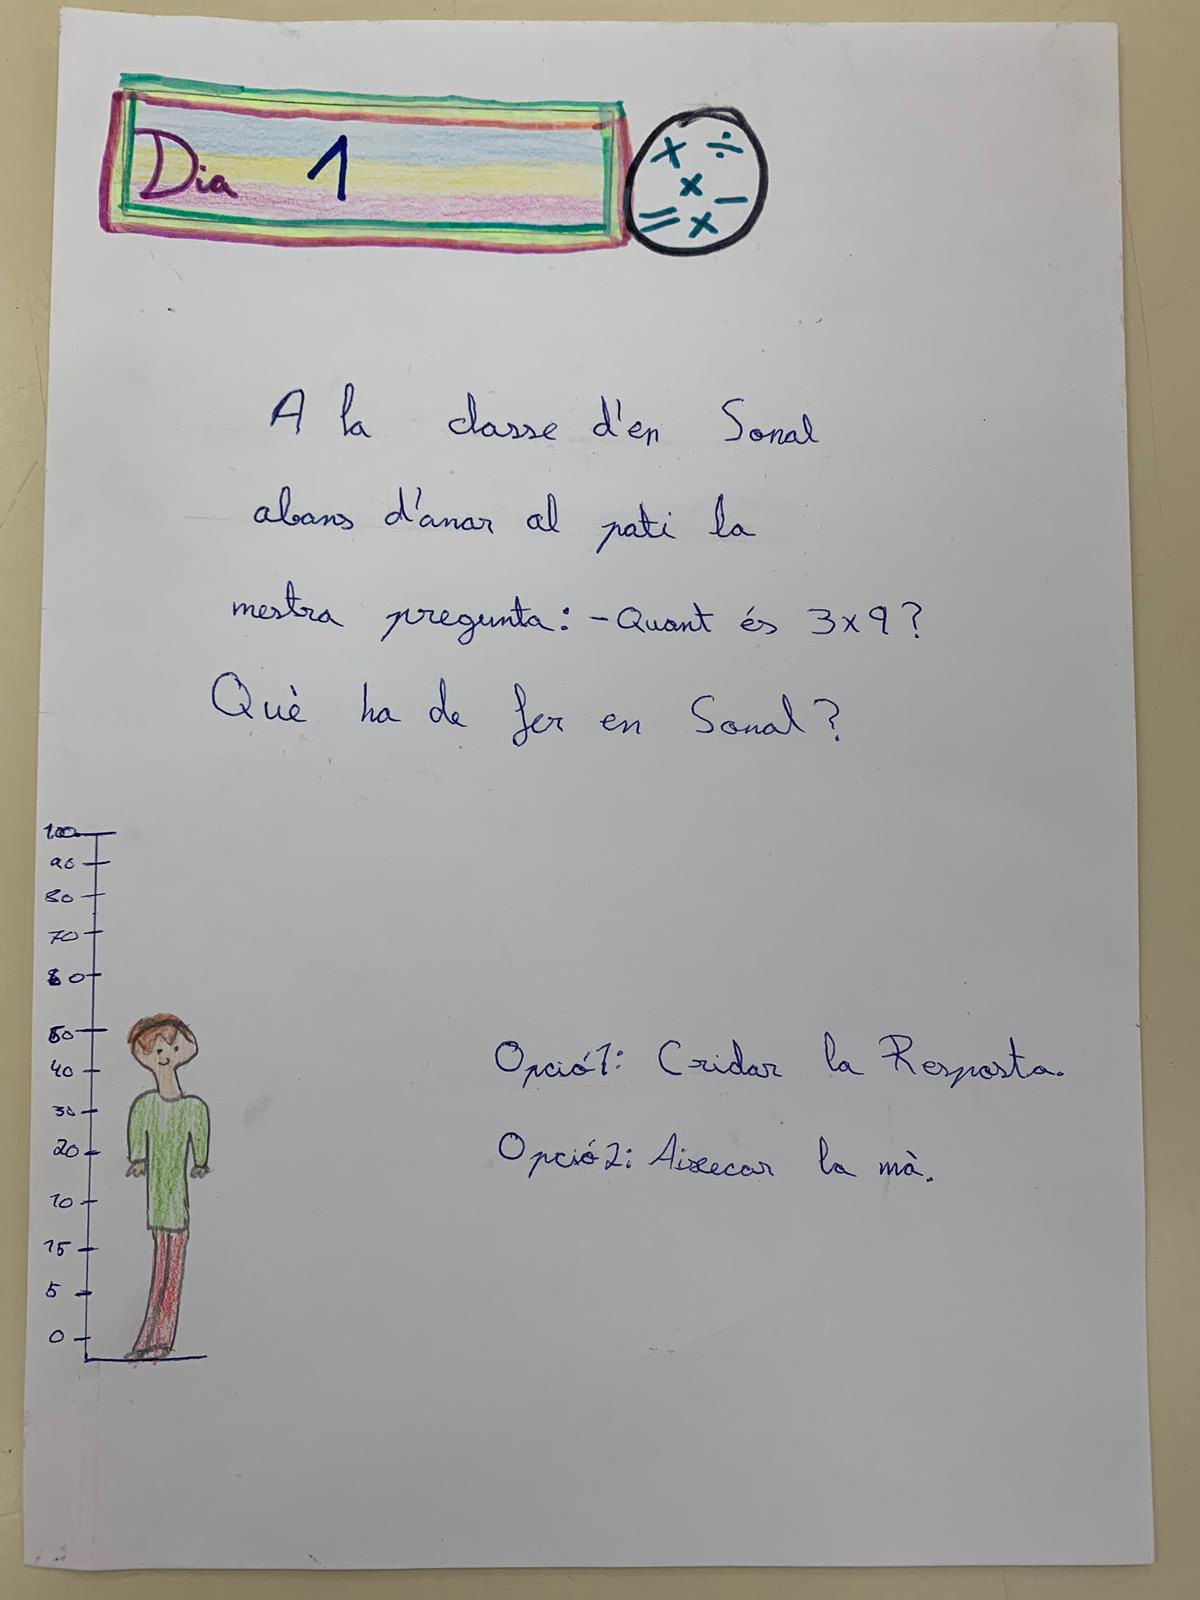 Dia 1
× ÷
×
= × -
A la classe d'en Sonal
abans d'anar al pati la
mestra pregunta: - Quant és 3x9?
Què ha de fer en Sonal?
100
90
80
70
60
50
40
30
20
10
15
5
0
Opció1: Cridar la Resposta.
Opció2: Aixecar la mà.